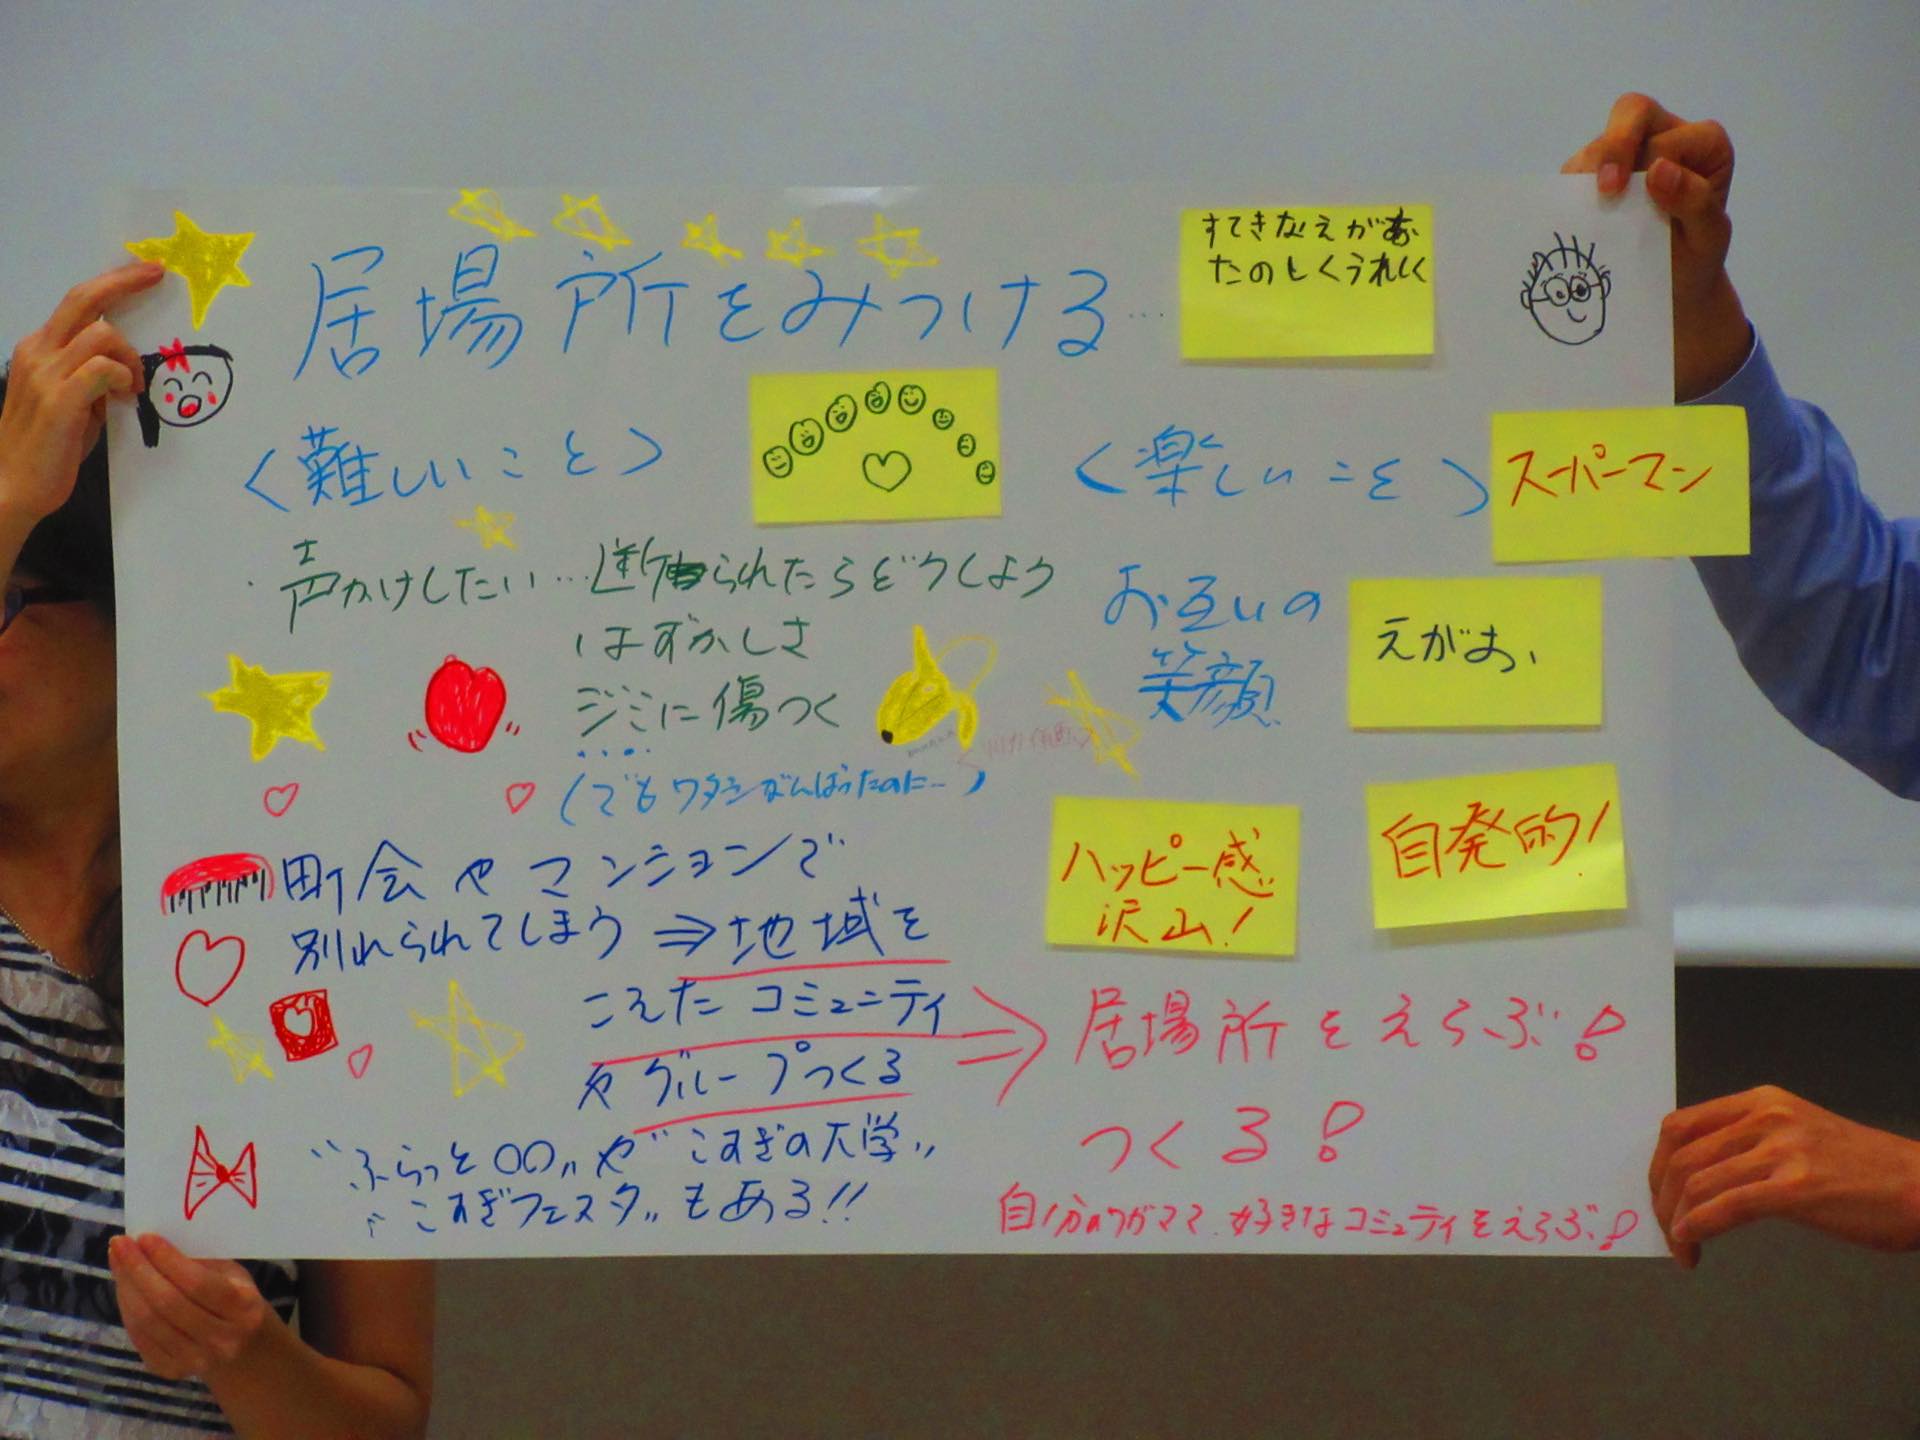 居場所をみつける…
すてきなえがお
たのしくうれしく
<難しいこと>
<楽しいこと>
スーパーマン
・声かけしたい…断られたらどうしよう
はずかしさ
ジミに傷つく
(でもワタシがんばったのに…)
お互いの
笑顔
えがお、
ハッピー感
沢山!
自発的!
町会やマンションで
別れられてしまう⇒地域を
こえたコミュニティ
やグループつくる
"ふらっと〇〇"や"こすぎの大学"
"こすぎフェスタ"もある!!
⇒居場所をえらぶ!
つくる!
自分のワガママ、好きなコミュティをえらぶ!